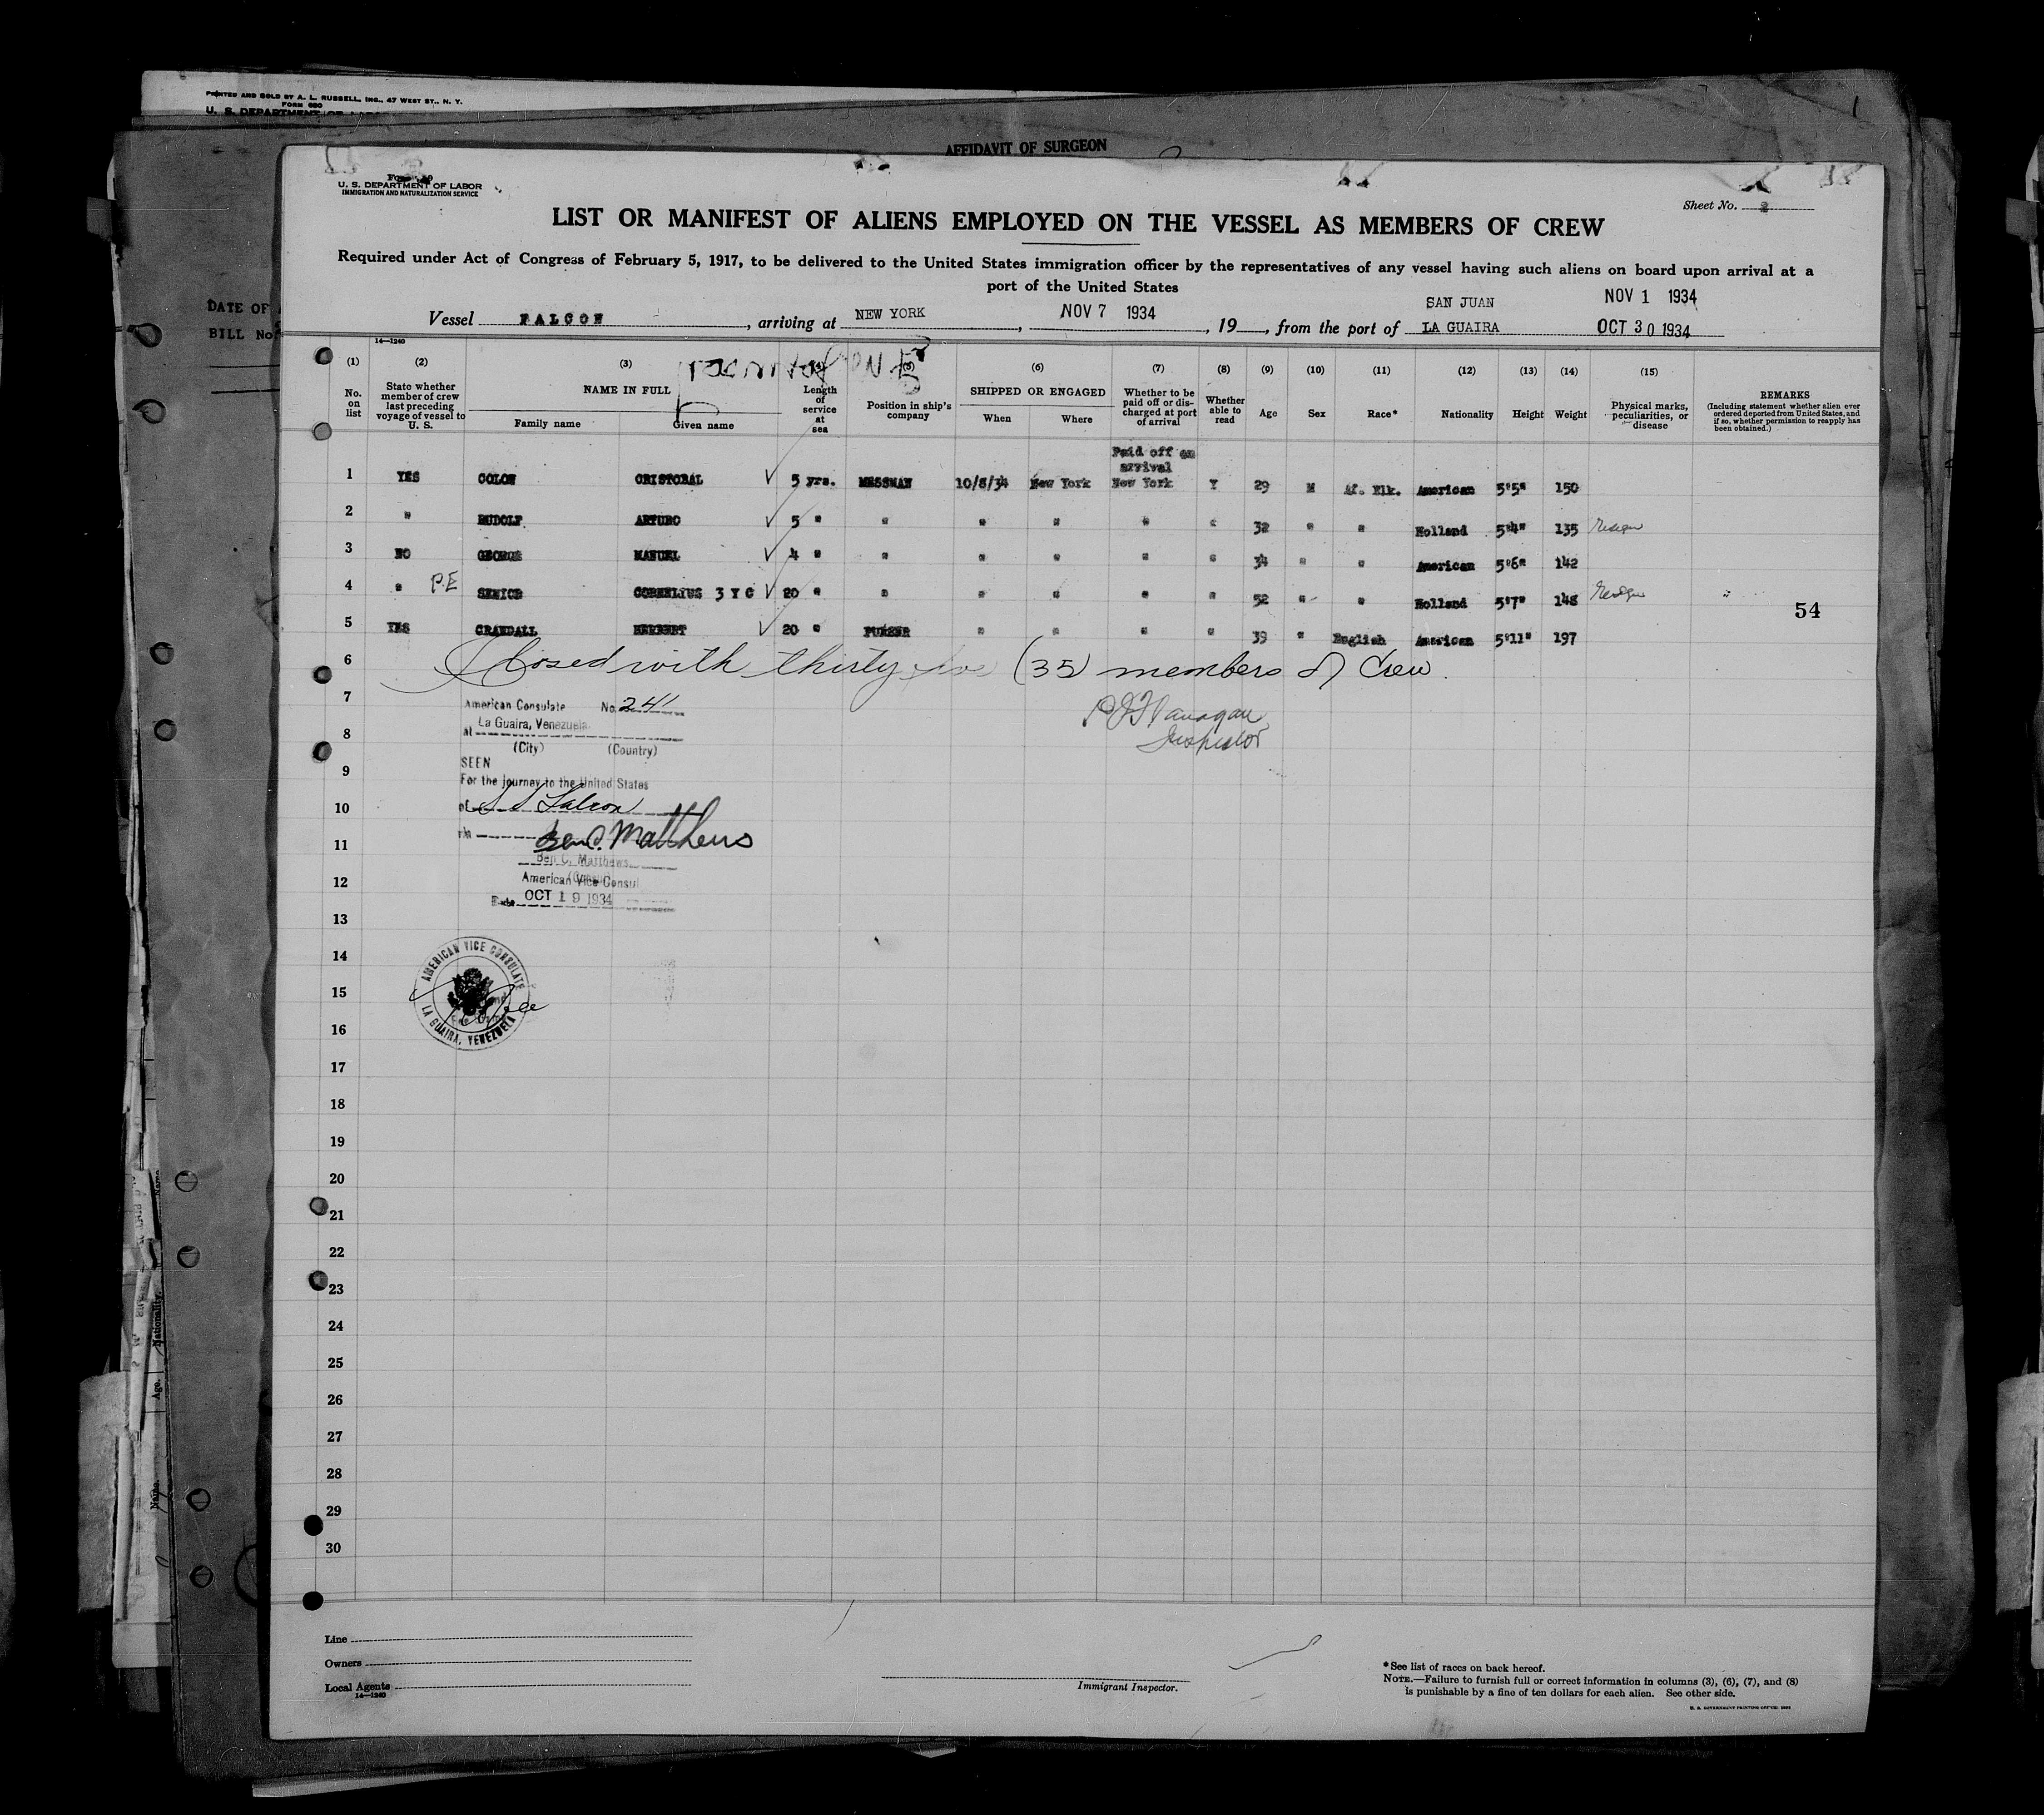 PRINTED AND SOLD BY A. L. RUSSELL, INC., 47 WEST ST., N. Y.
FORM 680
U. S. DEPARTMENT OF LABOR
AFFIDAVIT OF SURGEON
DATE OF
BILL No.
U. S. DEPARTMENT OF LABOR
IMMIGRATION AND NATURALIZATION SERVICE
Sheet No. 2
LIST OR MANIFEST OF ALIENS EMPLOYED ON THE VESSEL AS MEMBERS OF CREW
Required under Act of Congress of February 5, 1917, to be delivered to the United States immigration officer by the representatives of any vessel having such aliens on board upon arrival at a
port of the United States
SAN JUAN NOV 1 1934
Vessel FALCON, arriving at NEW YORK, NOV 7 1934, 19, from the port of LA GUAIRA OCT 30 1934
14—1240
(1) (2) (3) (6) (7) (8) (9) (10) (11) (12) (13) (14) (15)
No. on list
State whether member of crew last preceding voyage of vessel to U. S.
NAME IN FULL
Family name
Given name
Length of service at sea
Position in ship's company
SHIPPED OR ENGAGED
When
Where
Whether to be paid off or discharged at port of arrival
Whether able to read
Age
Sex
Race*
Nationality
Height
Weight
Physical marks, peculiarities, or disease
REMARKS
(Including statement whether alien ever ordered deported from United States, and if so, whether permission to reapply has been obtained.)
1 YES COLON CRISTOBAL √ 5 yrs. MESSMAN 10/8/34 New York Paid off on arrival New York Y 29 M Af. Blk. American 5'5" 150
2 " RUDOLF ARTURO √ 5 " " " " " " 32 " " Holland 5'4" 135
3 NO GEORGE MANUEL √ 4 " " " " " " 34 " " American 5'6" 142
4 " P.E SEMIOR CORNELIUS 3 Y C √ 20 " " " " " " 52 " " Holland 5'7" 148 "
54
5 YES CRANDALL HERBERT √ 20 " PURSER " " " " 39 " English American 5'11" 197
6 Closed with thirty five (35) members of Crew.
7 American Consulate No. 241
P J Flanagan
La Guaira, Venezuela
8 at
Inspector
(City) (Country)
SEEN
9 For the journey to the United States
10 of S S Falcon
via
11 Ben C. Matthews
Ben C. Matthews
12 American Vice Consul
Date OCT 19 1934
13
14
AMERICAN VICE CONSULATE
LA GUAIRA, VENEZUELA
15
16
17
18
19
20
21
22
23
24
25
26
27
28
29
30
Line
Owners
Local Agents
14—1240
Immigrant Inspector.
*See list of races on back hereof.
NOTE.—Failure to furnish full or correct information in columns (3), (6), (7), and (8)
is punishable by a fine of ten dollars for each alien. See other side.
Name
Nationality.
Age.
Name.